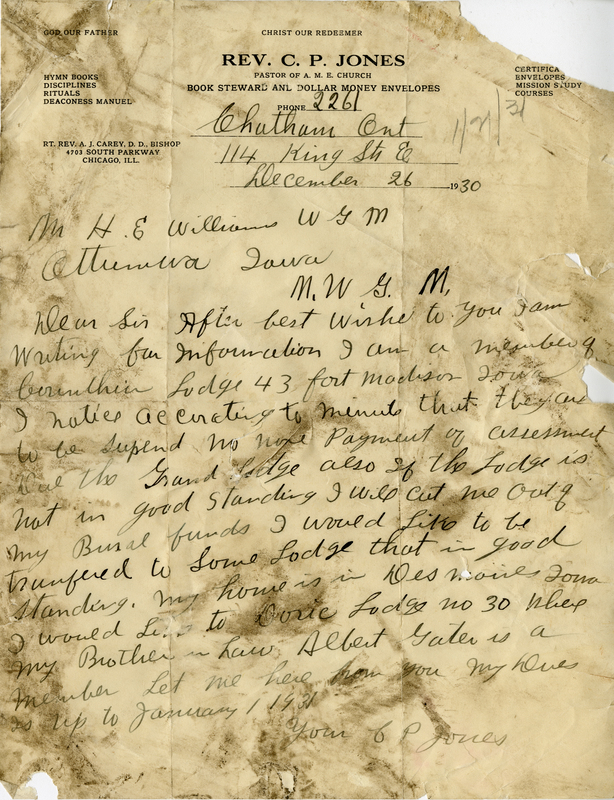 GOD OUR FATHER
CHRIST OUR REDEEMER
REV. C. P. JONES
PASTOR OF A. M. E. CHURCH
BOOK STEWARD AND DOLLAR MONEY ENVELOPES
HYMN BOOKS
DISCIPLINES
RITUALS
DEACONESS MANUEL
CERTIFICA
ENVELOPES
MISSION STUDY
COURSES
PHONE 2261
RT. REV. A. J. CAREY, D. D., BISHOP
4703 SOUTH PARKWAY
CHICAGO, ILL.
Chatham Ont
114 King Str E
December 26 1930
1/2/31
Mr H. E Williams W G M
Ottumwa Iowa
M. W. G. M,
Dear Sir After best Wishe to you I am
Writing for Information I am a member of
Corinthin Lodge 43 fort Madison Iowa
I notice accorating to minuts that they are
to be Supend no none Payment of assessment
the Grand Lodge also If the Lodge is
not in good Standing I will cut me out of
my Bural funds I would Like to be
tranfered to Some Lodge that in good
Standing. my home is in Des moines Iowa
I would Li to Doric Lodge no 30 Whee
my Brother in Law Albert Gater is a
member Let me here from you My Dues
is up to January 1 1931
Your C P Jones